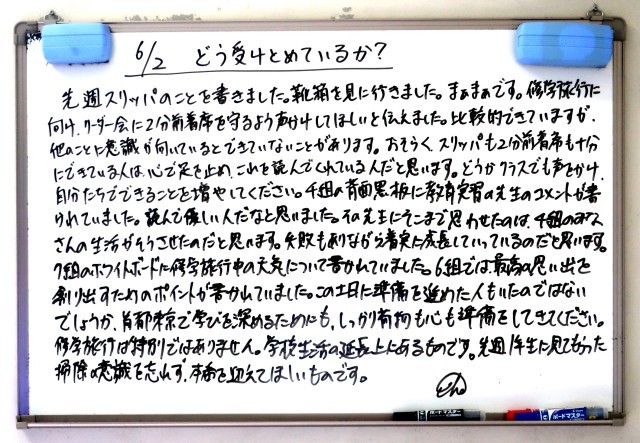 6/2 どう受けとめているか?
先週スリッパのことを書きました。靴箱を見に行きました。まぁまぁです。修学旅行に
向け、リーダー会に2分前着席を守るよう声かけしてほしいと伝えました。比較的できていますが、
他のことに意識が向いているとできていないことがあります。おそらく、スリッパも2分前着席も十分
にできている人は、心で足を止め、これを読んでくれている人だと思います。どうかクラスでも声をかけ、
自分たちでできることを増やしてください。4組の背面黒板に教育実習の先生のコメントが書
かれていました。読んで優しい人だなと思いました。その先生にそこまで思わせたのは、4組のみな
さんの生活がそうさせたのだと思います。失敗もありながら着実に成長していっているのだと思います。
7組のホワイトボードに修学旅行中の天気について書かれていました。6組では最高の思い出を
創り出すためのポイントが書かれていました。この土日に準備を進めた人もいたのではない
でしょうか。首都東京で学びを深めるためにも、しっかり有物も心も準備をしてきてください。
修学旅行は特別ではありません。学校生活の延長上にあるものです。先週1年生に見てもらった
掃除の意識を忘れず、本番を迎えてほしいものです。
ボードマスター